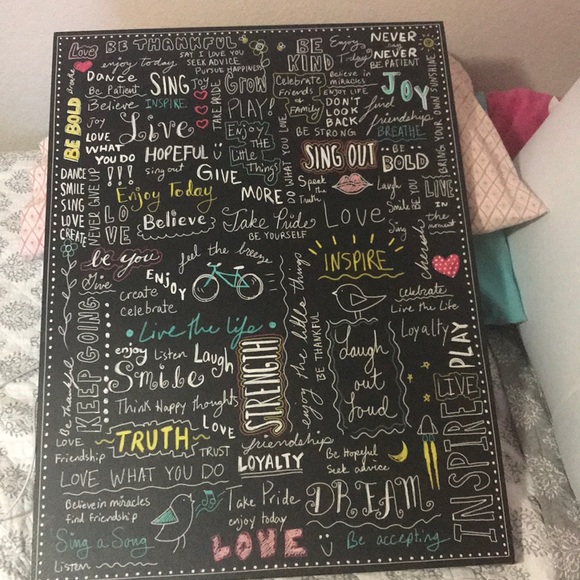 Love
BE THANKFUL
enjoy today
SAY I LOVE YOU
SEEK ADVICE
PURSUE HAPPINESS
BE KIND
Enjoy Today
NEVER say NEVER
BE PATIENT
DANCE
Be Patient
Believe
INSPIRE
SING
JOY
TAKE PRIDE
GROW
PLAY!
Celebrate Friends & Family
Believe in miracles
ENJOY LIFE
DON'T LOOK BACK
BE STRONG
JOY
find friendship
BREATHE
BRING YOUR OWN SUNSHINE
BE BOLD
JOY
LOVE
WHAT
YOU DO
Live
HOPEFUL
Enjoy
THE
Little
Things
DO WHAT YOU LOVE
SING OUT
BE BOLD
DANCE
SMILE
SING
LOVE
CREATE
NEVER GIVE UP
!!!
sing out
GIVE
MORE
Enjoy Today
LOVE
Believe
Take Pride
BE YOURSELF
Speak the Truth
Love
Laugh
Smile
Sing
LIVE
IN
the
moment
be you
Give
ENJOY
create
celebrate
feel the breeze
enjoy the little things
BE THANKFUL
INSPIRE
cherish
celebrate
Live the Life
Loyalty
PLAY
Be thankful
KEEP GOING
Live the life
enjoy
Listen
Laugh
Smile
Think Happy thoughts
STRENGTH
Laugh
out
loud
LIVE
INSPIRE
LOVE
Friendship
TRUTH
LOVE
TRUST
friendship
LOYALTY
Be Hopeful
Seek advice
LOVE WHAT YOU DO
Believe in miracles
find friendship
Sing a Song
Listen
Take Pride
enjoy today
DREAM
LOVE
Be accepting